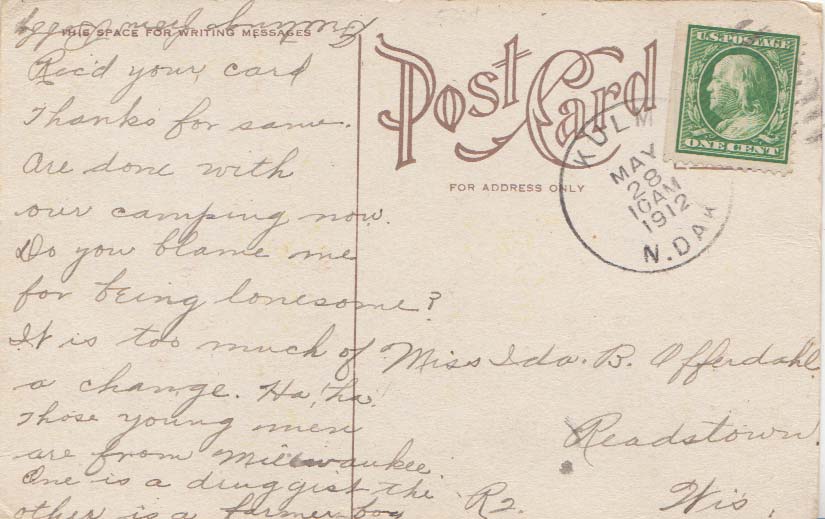 THIS SPACE FOR WRITING MESSAGES
Rec'd your card
Thanks for same.
Are done with
our camping now.
Do you blame me
for being lonesome?
It is too much of
a change. Ha, ha.
Those young men
are from Milwaukee
One is a druggist the
other is a farmer boy
Post Card
FOR ADDRESS ONLY
U.S. POSTAGE
ONE CENT
KULM
MAY
28
10AM
1912
N. DAK
Miss Ida. B. Offerdahl.
Readstown.
R2. Wis.